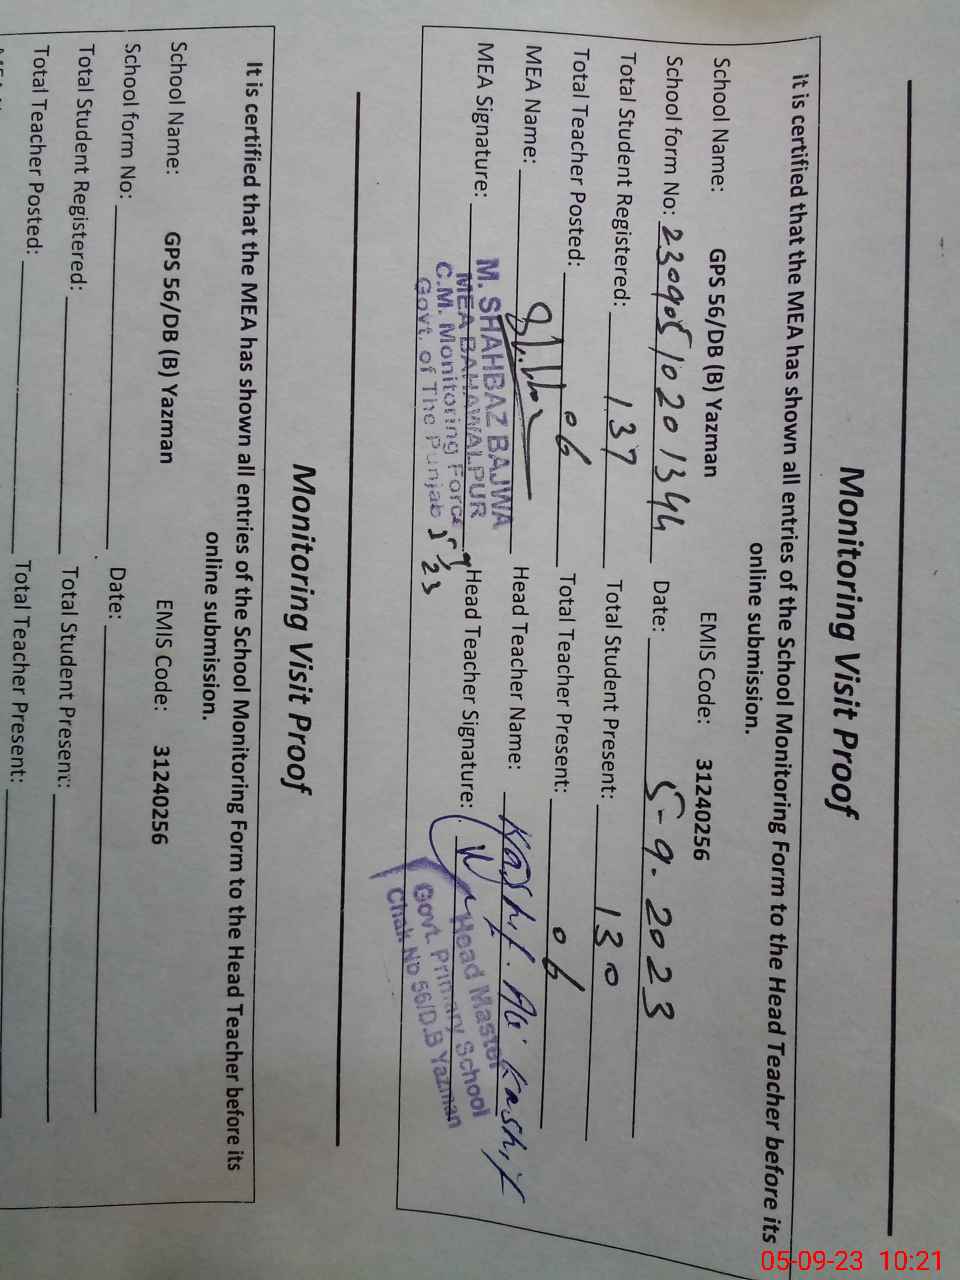 Monitoring Visit Proof
it is certified that the MEA has shown all entries of the School Monitoring Form to the Head Teacher before its
online submission.
School Name: GPS 56/DB (B) Yazman EMIS Code: 31240256
School form No: 23090510201344 Date: 5-9.2023
Total Student Registered: 137 Total Student Present: 130
Total Teacher Posted: 06 Total Teacher Present: 06
MEA Name: Head Teacher Name: Kashif Ali Kashif
MEA Signature: Head Teacher Signature:
M. SHAHBAZ BAJWA
MEA BAHAWALPUR
C.M. Monitoring Force
Govt. of The Punjab
5/9/23
Head Master
Govt. Primary School
Chak No 56/D.B Yazman
Monitoring Visit Proof
It is certified that the MEA has shown all entries of the School Monitoring Form to the Head Teacher before its
online submission.
School Name: GPS 56/DB (B) Yazman EMIS Code: 31240256
School form No: Date:
Total Student Registered: Total Student Present:
Total Teacher Posted: Total Teacher Present:
05-09-23 10:21